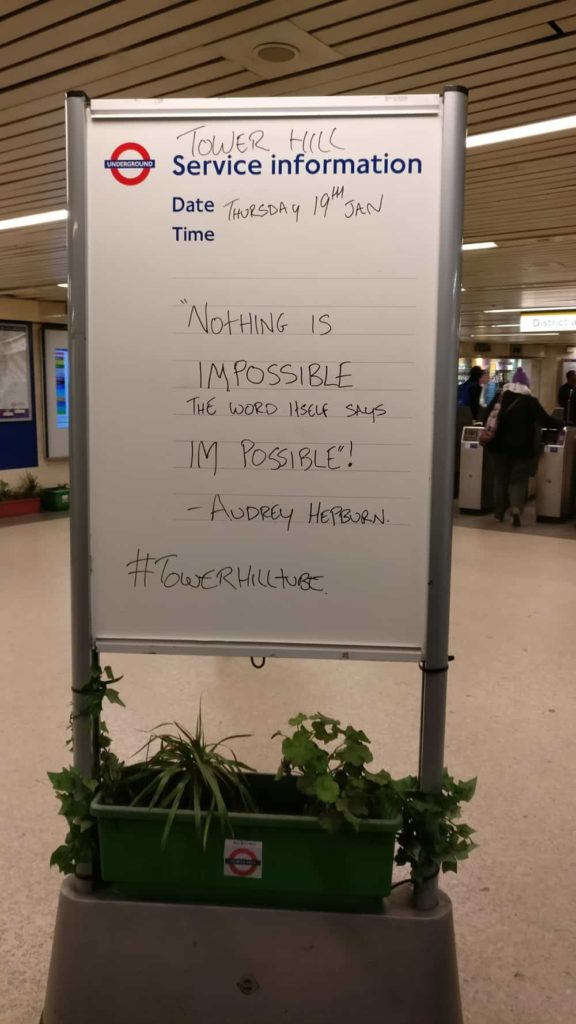 TOWER HILL
UNDERGROUND
Service information
Date THURSDAY 19TH JAN
Time
"NOTHING IS
IMPOSSIBLE
THE WORD ITSELF SAYS
IM POSSIBLE"!
- AUDREY HEPBURN.
#TOWERHILLTUBE.
District